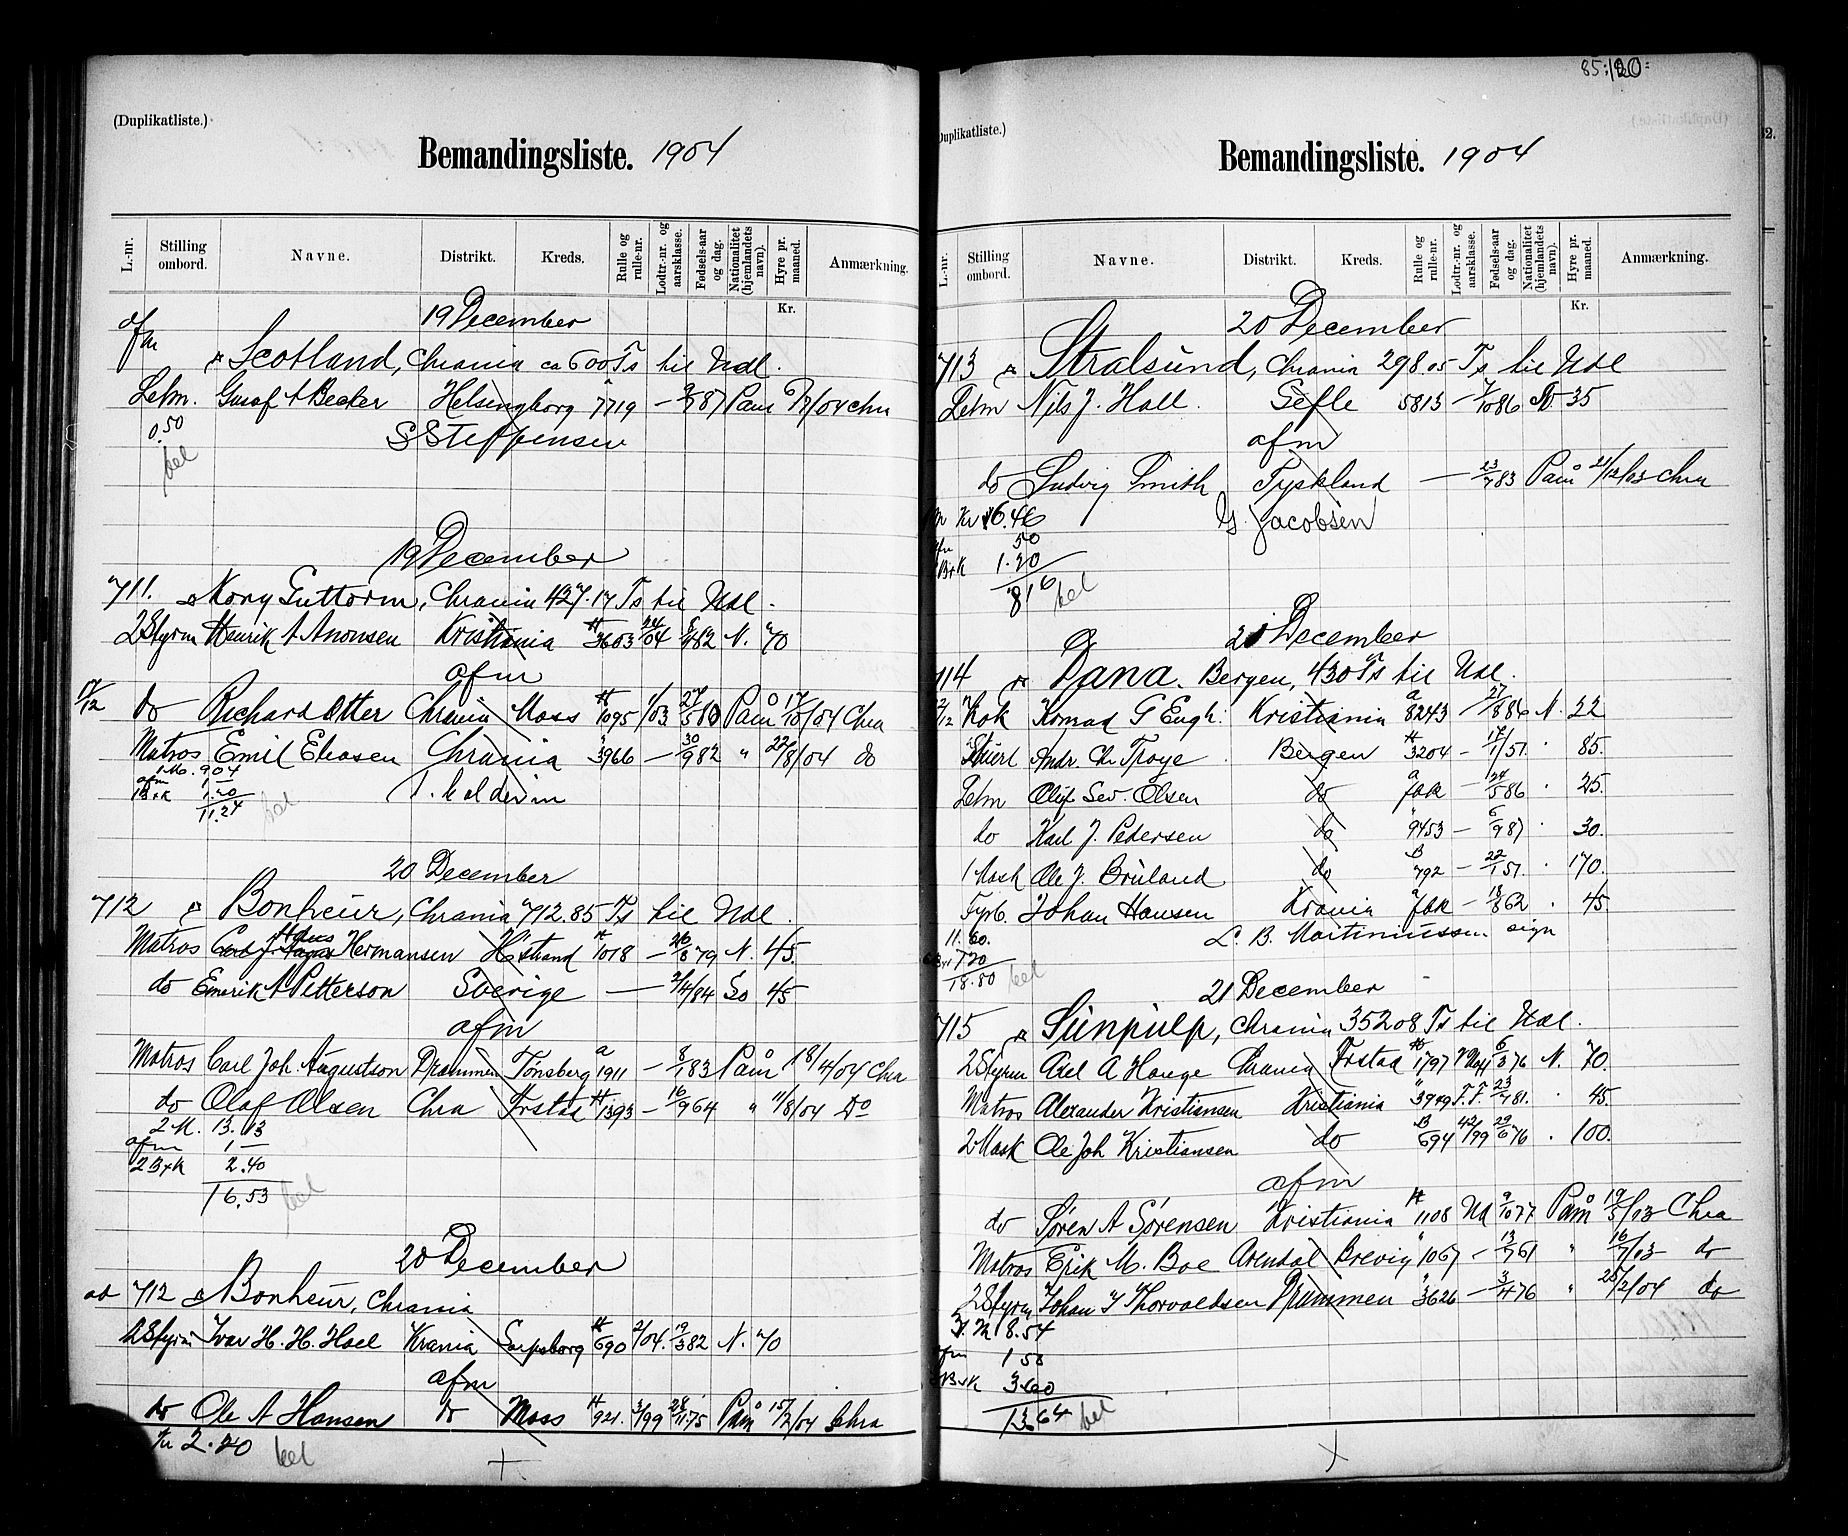 (Duplikatliste.)
Bemandingsliste. 1904
L.-nr. Stilling ombord. Navne. Distrikt. Kreds. Rulle og rulle-nr. Lodtr.-nr. og aarsklasse. Fødsels-aar og dag. Nationalitet (hjemlandets navn). Hyre pr. maaned. Anmærkning.
Kr.
19 December
afm
Scotland, Chrania ca 600 Ts til Udl.
Letm. Gustaf A Becker Helsingborg 7719 — 87 Paam /04 Chra
0.50 S Steffensen
bel
19 December
711. Kong Guttorm, Chrania 427.17 Ts til Udl.
2 Styrm Henrik A Aronsen Kristiania A 3603 24/04 8/4 82 N. 70
afm
17/12 do Richard Otter Chrania Moss A 1095 1/03 27/5 80 Paam 17/10/04 Chra
Matros Emil Eliasen Chrania 3966 — 30/9 82 " 22/8/04 do
1 M. 9.04
afm 1.—
B+K 1.20
11.24 bel
20 December
712 Bonheur, Chrania 712.85 Ts til Udl.
Matros Hermansen H strand A 1018 — 26/8 79 N. 45.
do Emerik A Petterson Sverige — 2/4/84 So 45
afm
Matros Carl Joh. Augustson Drammen Tønsberg a 1911 — 8/1 83 Paam 18/4/04 Chra
do Olaf Olsen Chra Frstad A 1393 — 16/9 64 " 11/8/04 Do
2 M. 13.13
afm 1 —
2 B+K 2.40
16.53 bel
20 December
ad 712 Bonheur, Chrania
2 Styrm Ivar H. H. Hoel Krania Sarpsborg A 690 2/04. 19/3 82 N. 70
afm
do Ole A Hansen do Moss A 921. 3/99 28/11 75 Paam 15/2/04 Chra
Kr 2.20 bel
85: 120:
(Duplikatliste.)
Bemandingsliste. 1904
L.-nr. Stilling ombord. Navne. Distrikt. Kreds. Rulle og rulle-nr. Lodtr.-nr. og aarsklasse. Fødsels-aar og dag. Nationalitet (hjemlandets navn). Hyre pr. maaned. Anmærkning.
Kr.
20 December
713 Stralsund, Chrania 298.05 Ts til Udl
Letm Nils J. Hall. Gefle 5813 — 7/10 86 35
afm
do Ludvig Smith Tyskland — 23/7 83 Paam 21/12/03 Chra
Kr 6.46 G. Jacobsen
afm 50
B+K 1.20
8 16 bel
21 December
714 Dana. Bergen, 430 Ts til Udl.
Kok Konrad G Engh. Kristiania a 8243 — 27/8 86 N. 22
Stuert Andr. Chr Troye Bergen A 3204 — 17/1/51 . 85.
Letm Oluf Sev. Olsen do a fbk — 24/5 86 . 25.
do Karl J. Pedersen do " 9453 — 6/9 87 . 30.
1 Mask Ole J. Bruland do B 792 — 22/1 51 . 170.
Fyrb. Johan Hansen Krania a fbk — 18/8 62 . 45
11.60. L. B. Martiniussen sign
7 20
18.80 bel
21 December
715 Sunpulp, Chrania 352 08 Ts til Udl.
2 Styrm Axel A Hauge Chrania Frstad A 1797 6/3 76 N. 70.
Matros Alexander Kristiansen Kristiania " 3949 F.F. 23/7 81. 45.
2 Mask Ole Joh Kristiansen do B 694 42/99 29/6 76 . 100.
afm
do Søren A Sørensen Kristiania A 1108 Ud 9/10 77 Paam 19/5/03 Chra
Matros Erik M. Boe Arendal Brevig " 1067 — 13/7 61 " 16/7/03 do
2 Styrm Johan I Thorvaldsen Drammen " 3626 — 3/4 76 " 25/2/04 do
3 M 8.54
afm 1 50
3 B+K 3.60
13 64 bel